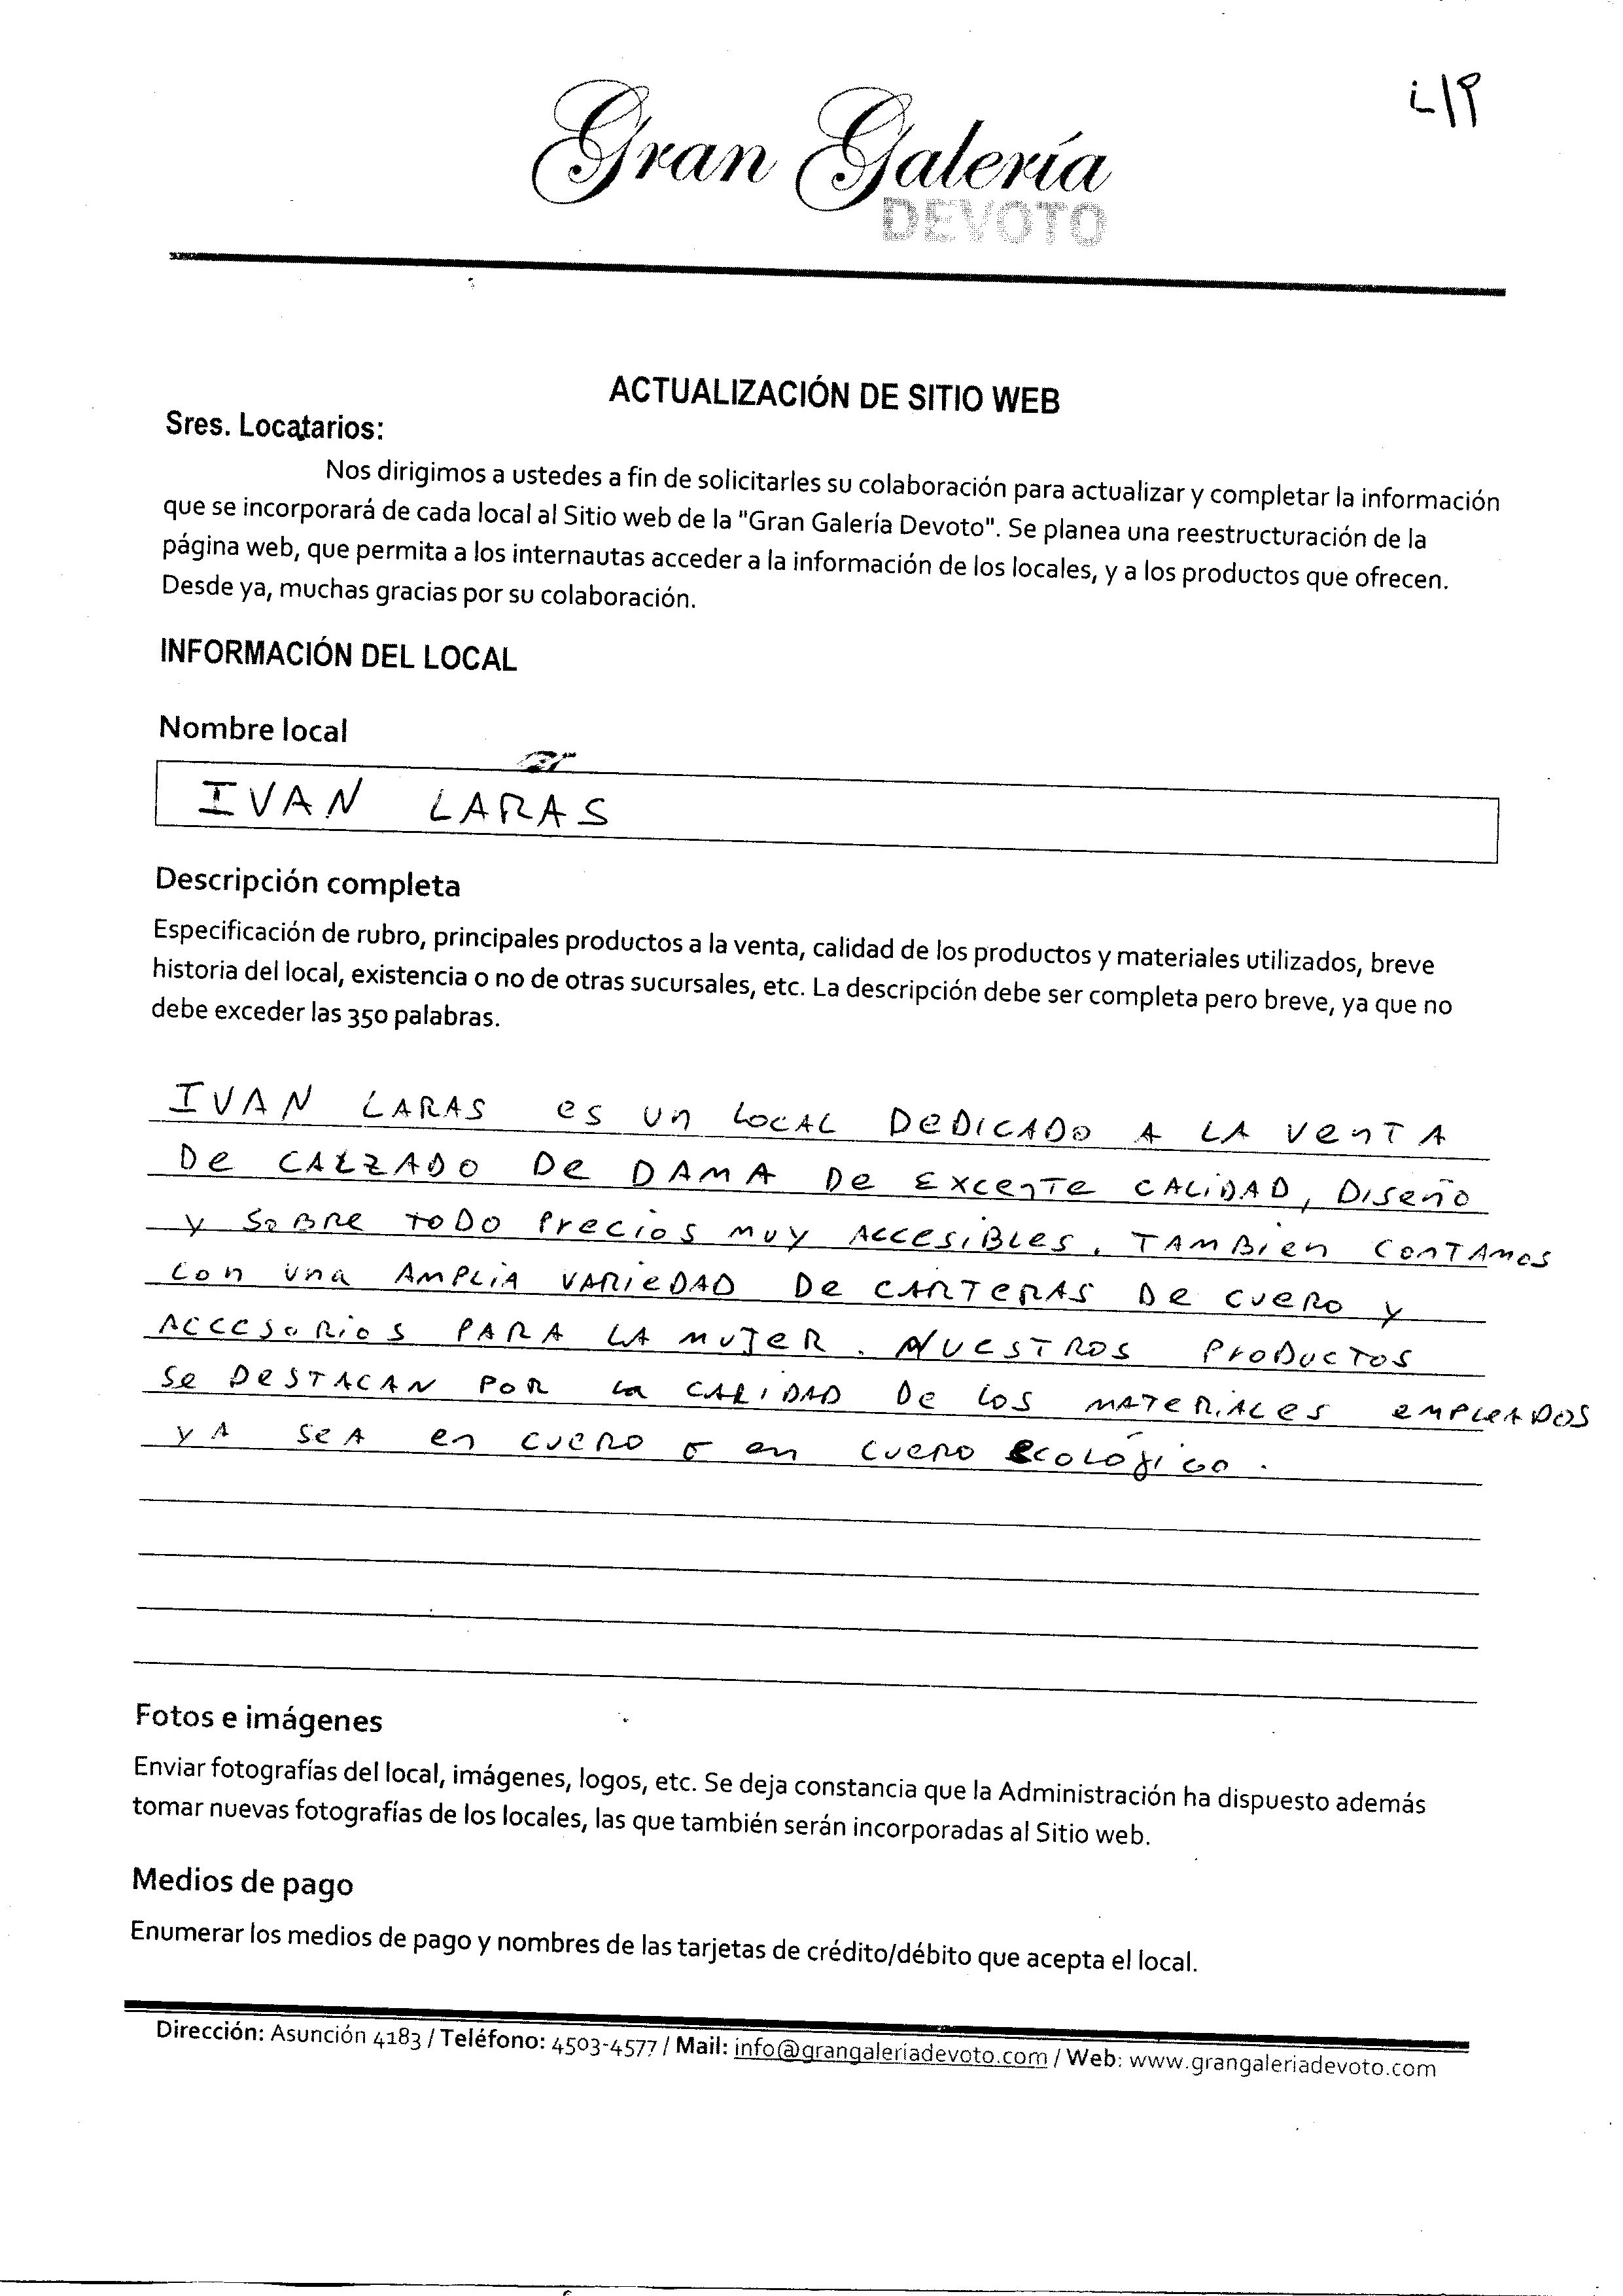 Gran Galería
DEVOTO
ACTUALIZACIÓN DE SITIO WEB
Sres. Locatarios:
Nos dirigimos a ustedes a fin de solicitarles su colaboración para actualizar y completar la información
que se incorporará de cada local al Sitio web de la "Gran Galería Devoto". Se planea una reestructuración de la
página web, que permita a los internautas acceder a la información de los locales, y a los productos que ofrecen.
Desde ya, muchas gracias por su colaboración.
INFORMACIÓN DEL LOCAL
Nombre local
IVAN LARAS
Descripción completa
Especificación de rubro, principales productos a la venta, calidad de los productos y materiales utilizados, breve
historia del local, existencia o no de otras sucursales, etc. La descripción debe ser completa pero breve, ya que no
debe exceder las 350 palabras.
IVAN LARAS es un LOCAL DeDICADO A LA VenTA
De CALZADO De DAMA De Excente CALIDAD, Diseño
y SOBRE TODO Precios MUY ACCesiBLes. TAMBien ConTAMOS
Con una AMPLIA VARIeDAD De CARTERAS De CUeRO y
ACCesoRios PARA LA MUJeR. NUESTROS PRODUCTOS
Se DeSTACAN POR la CALIDAD De LOS MATERiALes eMPLeADOS
YA SeA en CUERO o en CUERO ECOLÓgico.
Fotos e imágenes
Enviar fotografías del local, imágenes, logos, etc. Se deja constancia que la Administración ha dispuesto además
tomar nuevas fotografías de los locales, las que también serán incorporadas al Sitio web.
Medios de pago
Enumerar los medios de pago y nombres de las tarjetas de crédito/débito que acepta el local.
Dirección: Asunción 4183 / Teléfono: 4503-4577 / Mail: info@grangaleriadevoto.com / Web: www.grangaleriadevoto.com